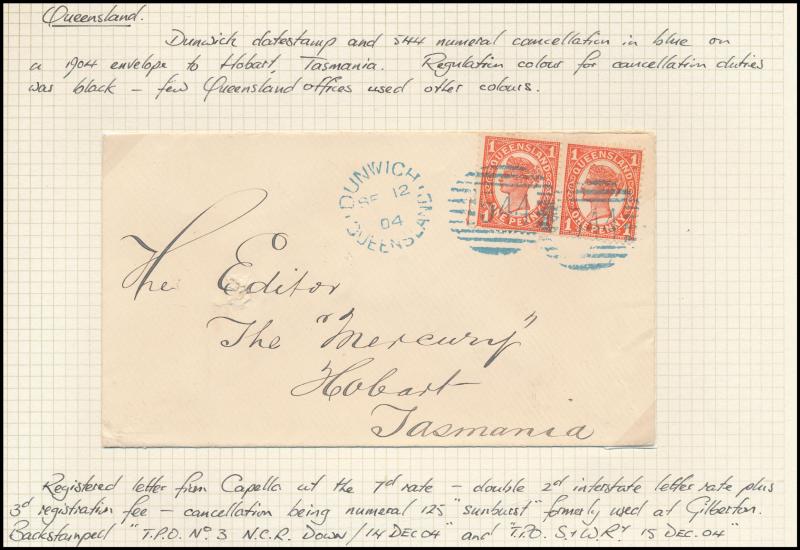 Queensland.
Dunwich datestamp and 544 numeral cancellation in blue on
a 1904 envelope to Hobart, Tasmania. Regulation colour for cancellation duties
was black – few Queensland offices used other colours.
DUNWICH
SE 12
04
QUEENSLAND
1 QUEENSLAND 1
1 ONE PENNY 1
1 QUEENSLAND 1
1 ONE PENNY 1
The Editor
The "Mercury"
Hobart
Tasmania
Registered letter from Capella at the 7d rate – double 2d interstate letter rate plus
3d registration fee – cancellation being numeral 125 "sunburst" formerly used at Gilberton.
Backstamped "T.P.O. No. 3 N.C.R. DOWN / 14 DEC 04" and "T.P.O. S & W. Ry 15 DEC. 04"